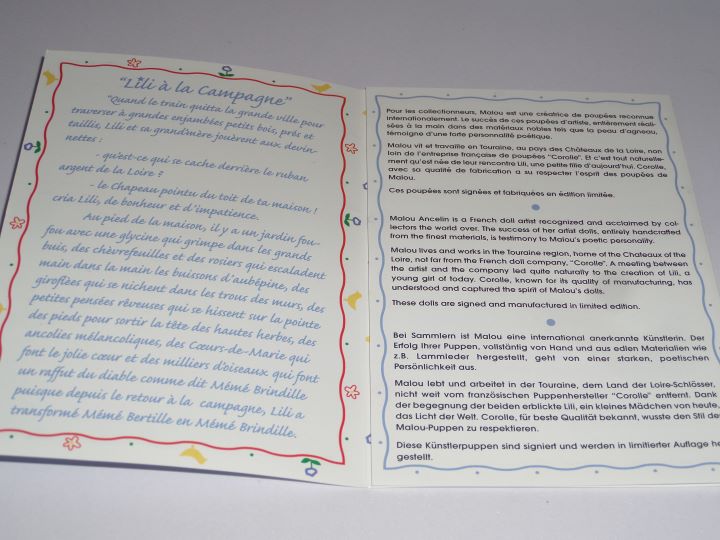 "Lili à la Campagne"
"Quand le train quitta la grande ville pour
traverser à grandes enjambées petits bois, prés et
taillis, Lili et sa grand'mère jouèrent aux devin-
nettes :
- qu'est-ce qui se cache derrière le ruban
argent de la Loire ?
- le chapeau pointu du toit de ta maison !
cria Lili, de bonheur et d'impatience.
Au pied de la maison, il y a un jardin fou-
fou avec une glycine qui grimpe dans les grands
buis, des chèvrefeuilles et des rosiers qui escaladent
main dans la main les buissons d'aubépine, des
giroflées qui se nichent dans les trous des murs, des
petites pensées rêveuses qui se hissent sur la pointe
des pieds pour sortir la tête des hautes herbes, des
ancolies mélancoliques, des Cœurs-de-Marie qui
font le jolie cœur et des milliers d'oiseaux qui font
un raffut du diable comme dit Mémé Brindille
puisque depuis le retour à la campagne, Lili a
transformé Mémé Bertille en Mémé Brindille.
Pour les collectionneurs, Malou est une créatrice de poupées reconnue
internationalement. Le succès de ces poupées d'artiste, entièrement réali-
sées à la main dans des matériaux nobles tels que la peau d'agneau,
témoigne d'une forte personnalité poétique.
Malou vit et travaille en Touraine, au pays des Châteaux de la Loire, non
loin de l'entreprise française de poupées "Corolle". Et c'est tout naturelle-
ment qu'est née de leur rencontre Lili, une petite fille d'aujourd'hui. Corolle,
avec sa qualité de fabrication a su respecter l'esprit des poupées de
Malou.
Ces poupées sont signées et fabriquées en édition limitée.
Malou Ancelin is a French doll artist recognized and acclaimed by col-
lectors the world over. The success of her artist dolls, entirely handcrafted
from the finest materials, is testimony to Malou's poetic personality.
Malou lives and works in the Touraine region, home of the Chateaux of the
Loire, not far from the French doll company, "Corolle". A meeting between
the artist and the company led quite naturally to the creation of Lili, a
young girl of today. Corolle, known for its quality of manufacturing, has
understood and captured the spirit of Malou's dolls.
These dolls are signed and manufactured in limited edition.
Bei Sammlern ist Malou eine international anerkannte Künstlerin. Der
Erfolg Ihrer Puppen, vollständig von Hand und aus edlen Materialien wie
z.B. Lammleder hergestellt, geht von einer starken, poetischen
Persönlichkeit aus.
Malou lebt und arbeitet in der Touraine, dem Land der Loire-Schlösser,
nicht weit vom französischen Puppenhersteller "Corolle" entfernt. Dank
der begegnung der beiden erblickte Lili, ein kleines Mädchen von heute,
das Licht der Welt. Corolle, für beste Qualität bekannt, wusste den Stil der
Malou-Puppen zu respektieren.
Diese Künstlerpuppen sind signiert und werden in limitierter Auflage he
gestellt.